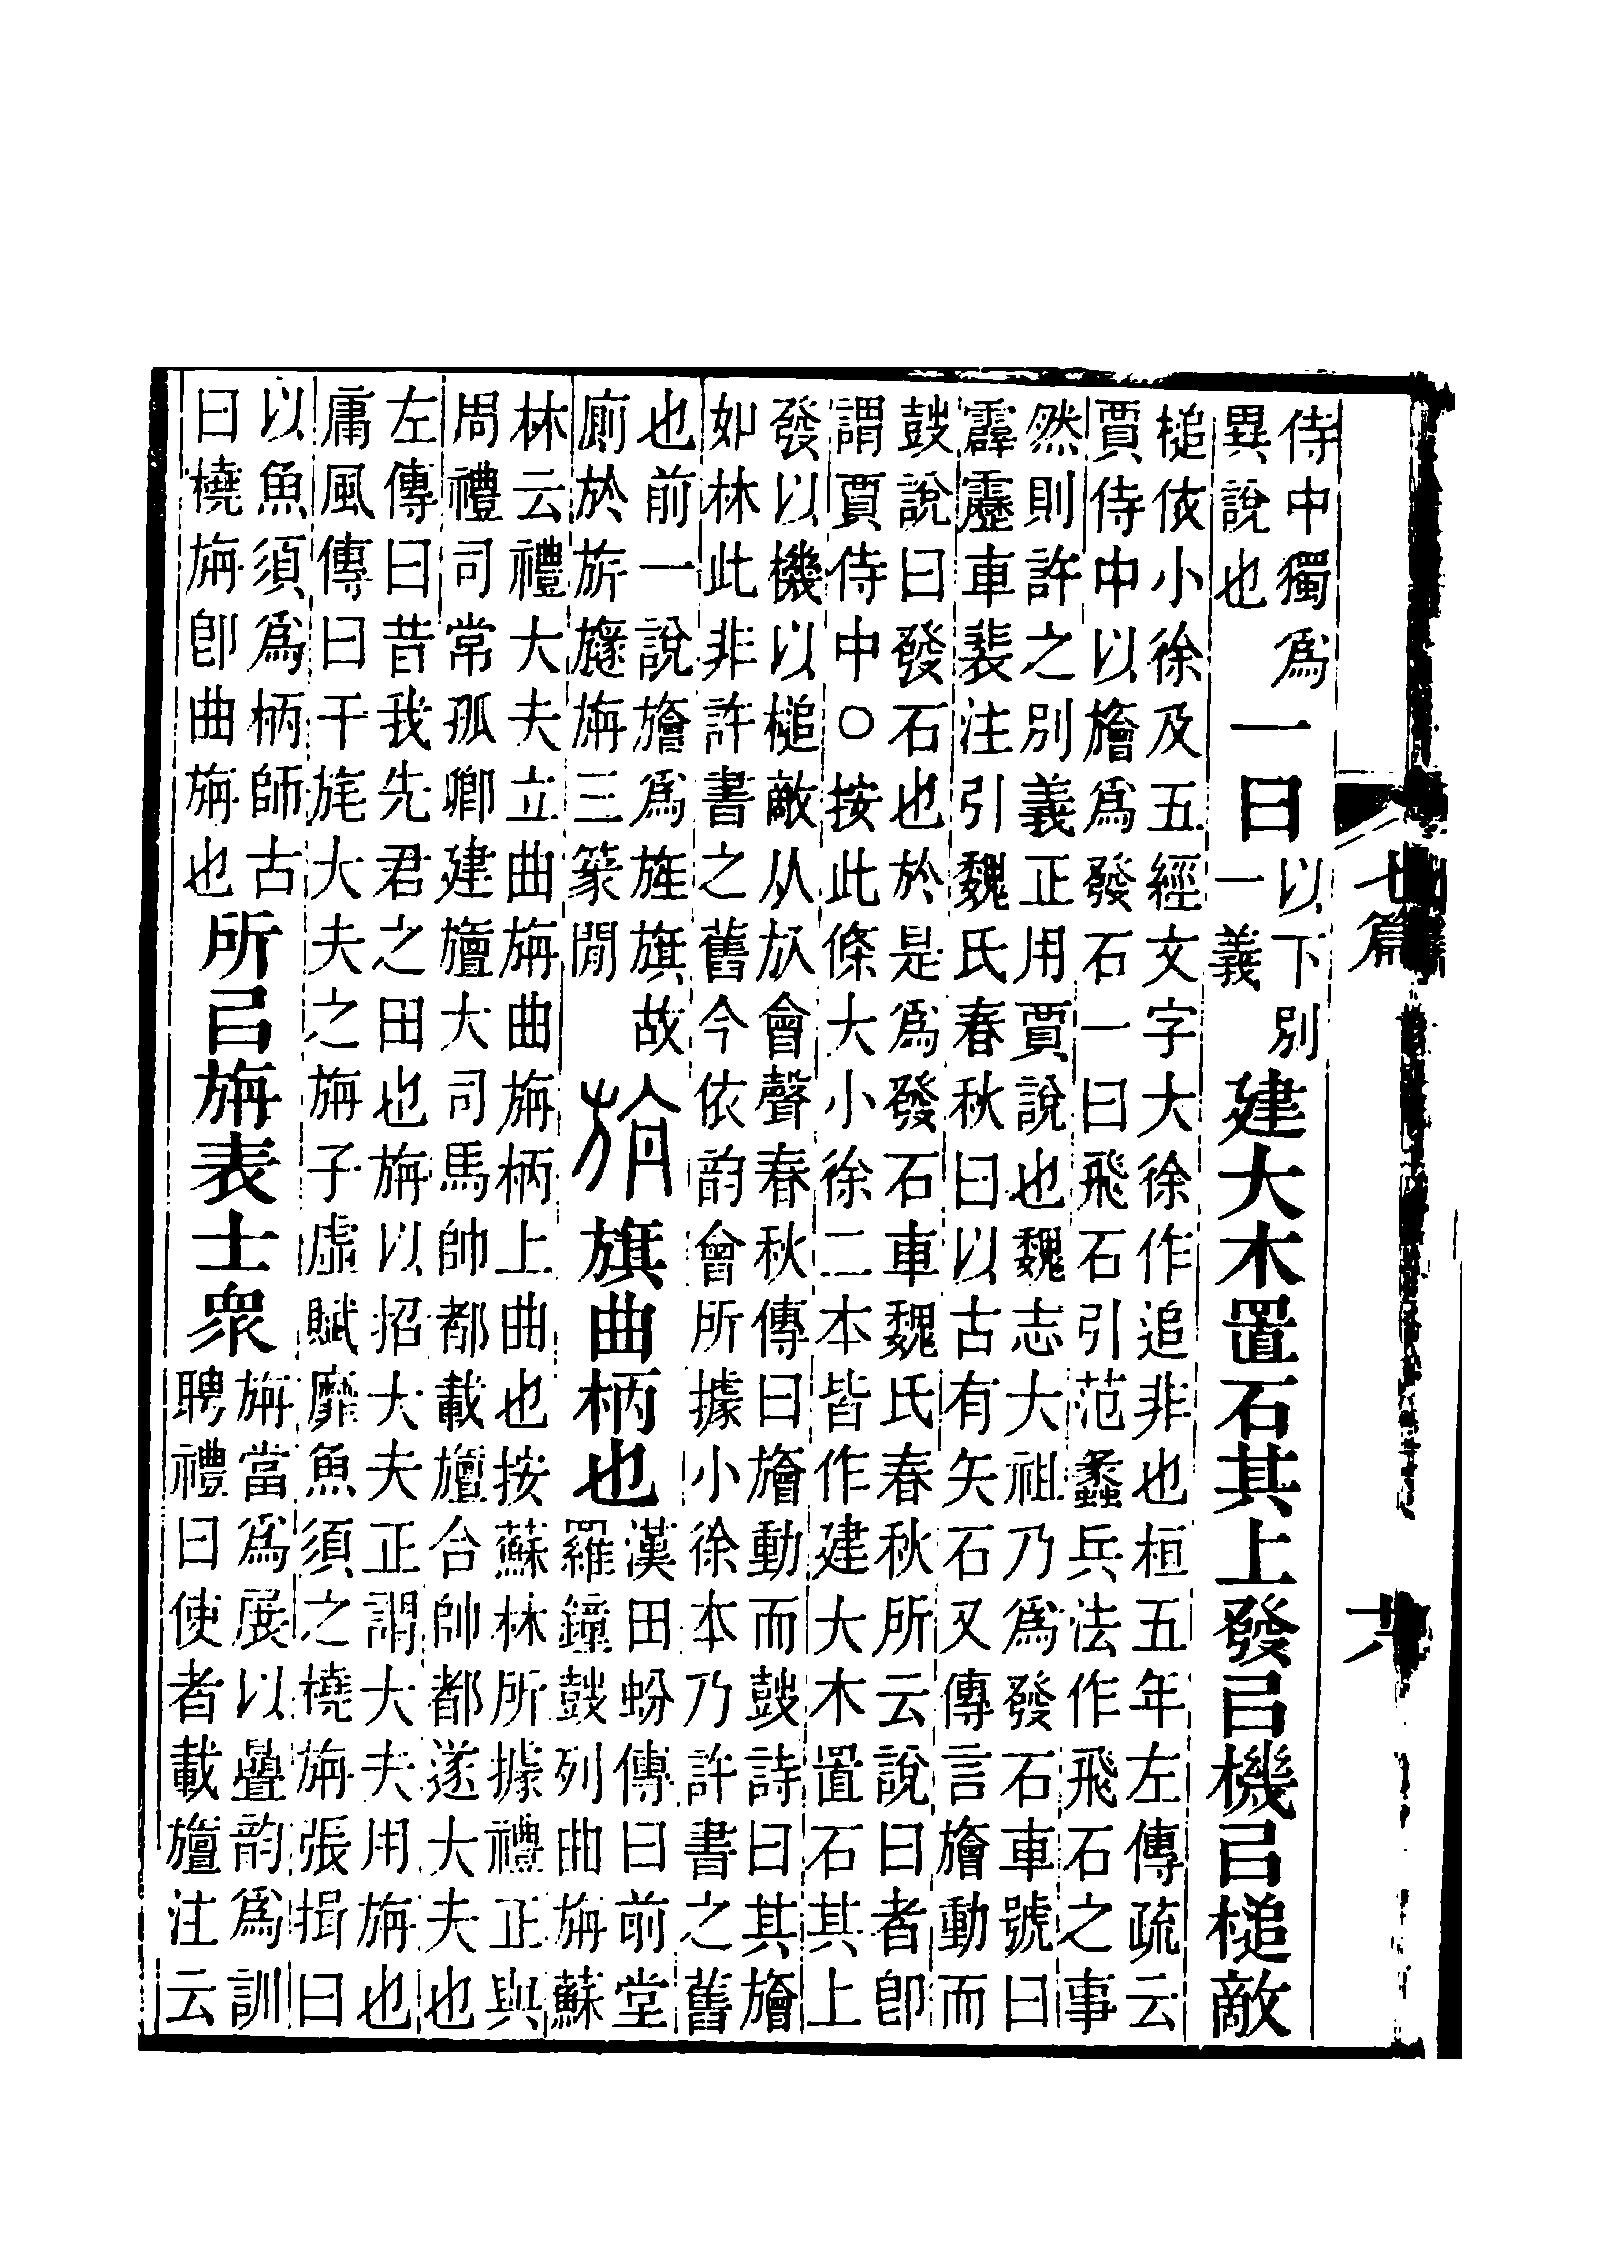 侍中獨爲異說也一曰以下別一義建大木置石其上發㠯機㠯槌敵
槌依小徐及五經文字大徐作追非也桓五年左傳疏云
賈侍中以旝爲發石一曰飛石引范蠡兵法作飛石之事
然則許之別義正用賈說也魏志大祖乃爲發石車號曰
霹靂車裴注引魏氏春秋曰以古有矢石又傳言旝動而
鼓說曰發石也於是爲發石車魏氏春秋所云說曰者卽
謂賈侍中○按此條大小徐二本皆作建大木置石其上
發以機以槌敵从㫃會聲春秋傳曰旝動而鼓詩曰其旝
如林此非許書之舊今依韵會所據小徐本乃許書之舊
也前一說旝爲旌旗故廁於旂旞旃三篆閒旃旗曲柄也漢田蚡傳曰前堂羅鐘鼓列曲旃蘇
林云禮大夫立曲旃曲旃柄上曲也按蘇林所據禮正與
周禮司常孤卿建旜大司馬帥都載旜合帥都遂大夫也
左傳曰昔我先君之田也旃以招大夫正謂大夫用旃也
庸風傳曰干旄大夫之旃子虛賦靡魚須之橈旃張揖曰
以魚須爲柄師古曰橈旃卽曲旃也所㠯旃表士衆旃當爲展以疊韵爲訓聘禮曰使者載旜注云
七篇